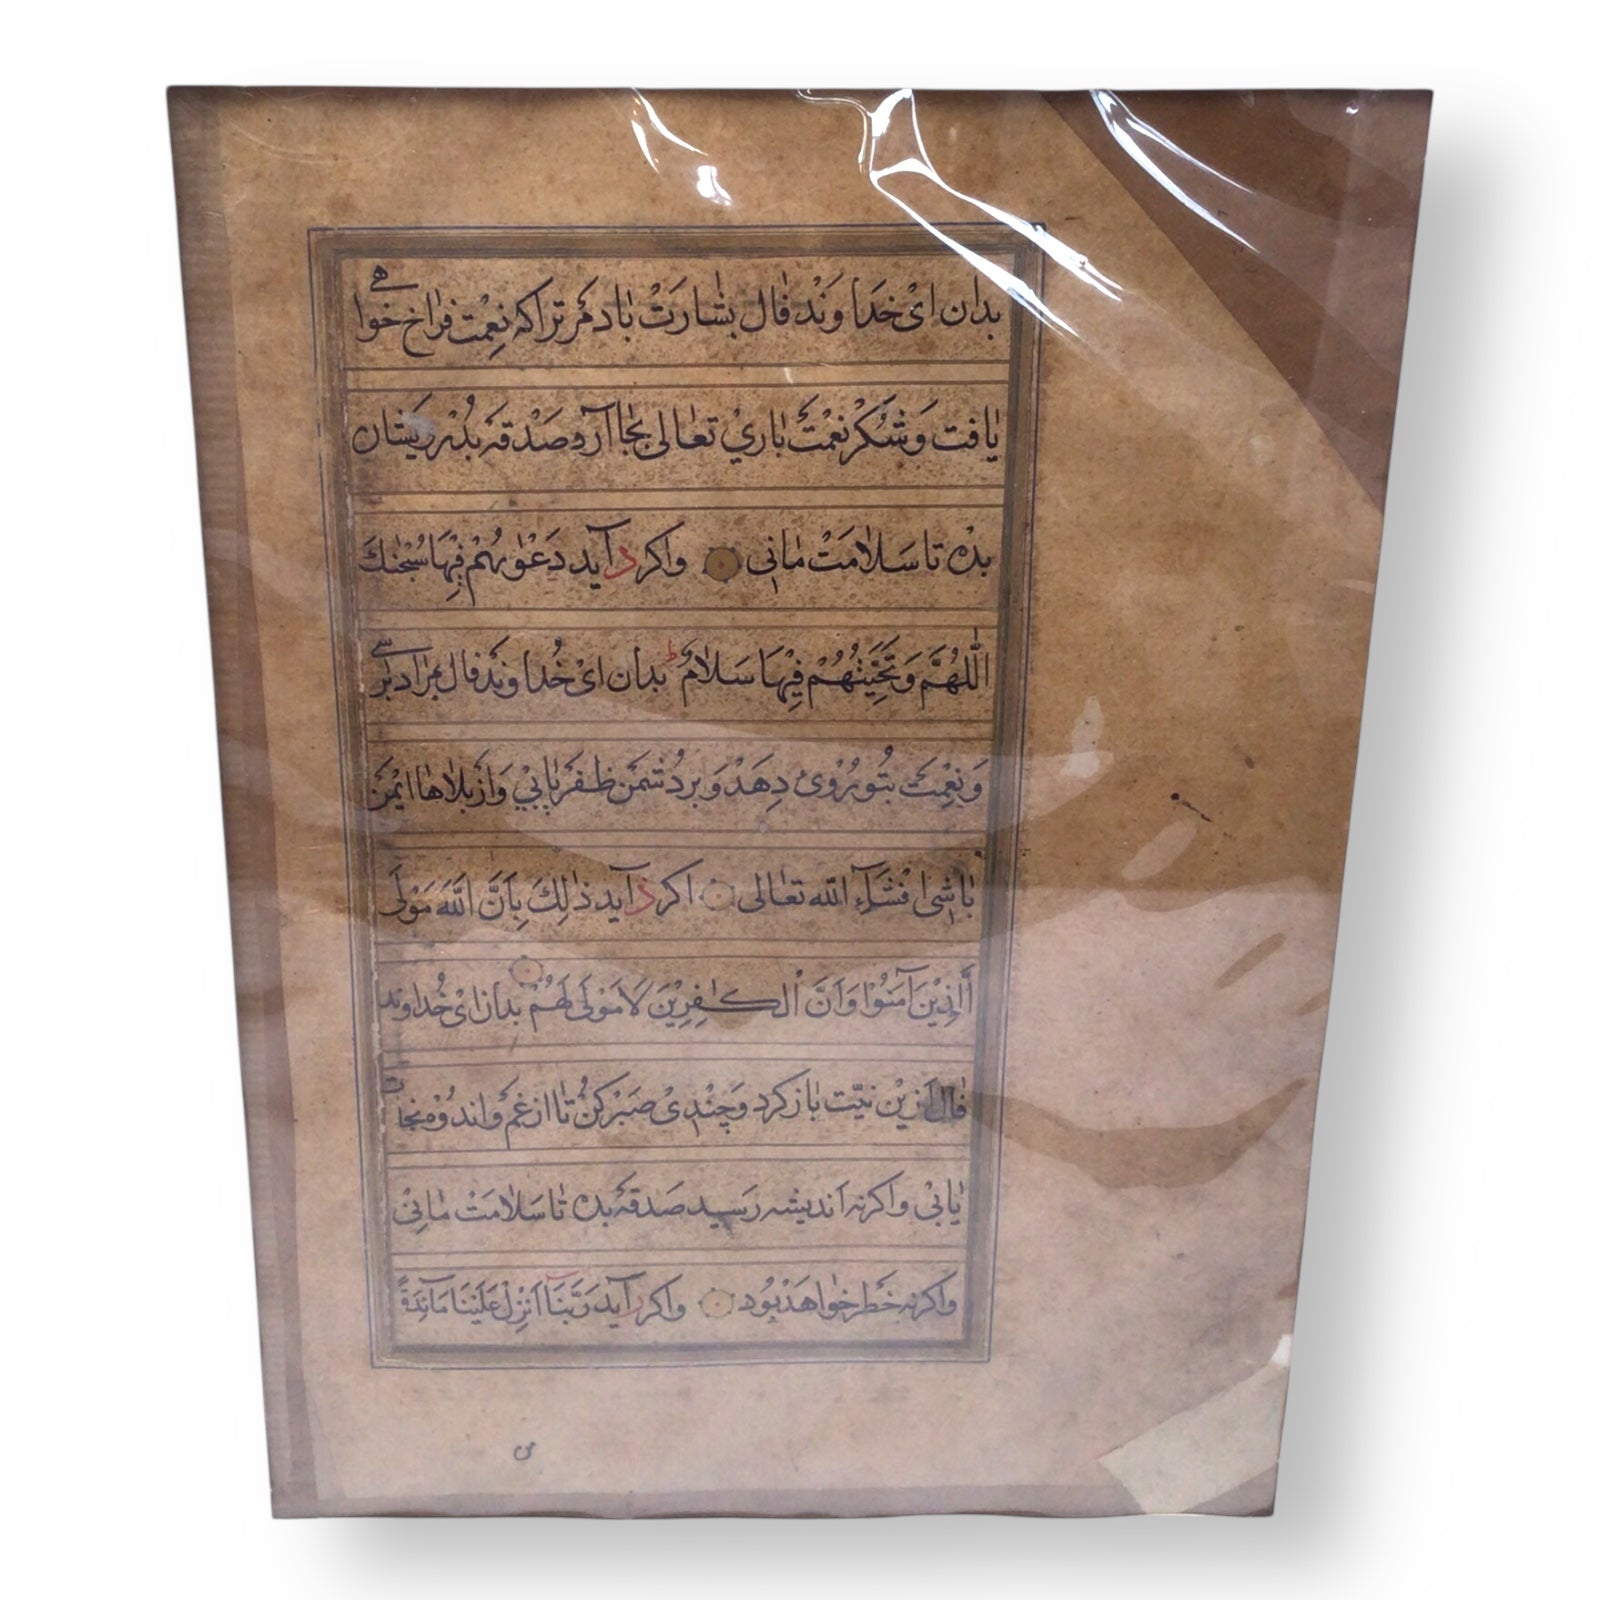 بدان ایْ خدَاوَنْد فٰال بشٰارَتْ بٰاد مَر ترا که نِعمْت فرٰاخ خواهے
یٰافت وَ شُکْرِ نعمْتَ بٰاریْ تعٰالی بجٰا آر و صَدْقه بدَرْویشٰان
بدْه تا سَلٰامَتْ مٰانی واکر ذ آید دَعْوٰىهُمْ فِيْهَا سُبْحٰنَكَ
اللّٰهُمَّ وَتَحِيَّتُهُمْ فِيْهَا سَلٰامٌ ط بدان ایْ خُداوند فال مرٰاد برسے
وَ نِعْمتْ بتُو رُوْی دِهَدْ وَ بر دُشمَنْ ظفَر یٰابیْ وَ از بلٰاهٰا ایْمَن
بٰاشی انْشَآءَ اللّه تعٰالی اکر ذ آید ذٰالِكَ بِاَنَّ اللّٰهَ مَوْلَى
الَّذِيْنَ آمَنُوْا وَاَنَّ الْكٰفِرِيْنَ لَا مَوْلَى لَهُمْ بدان ایْ خُداوند
فٰال ازیْن نیّت بٰاز کرد وَ چنْدیْ صَبْر کنْ تٰا از غم و اندُوْه نجات
یٰابیْ و اکر نه اَندیشه رَسید صَدقَه بده تٰا سَلٰامَتْ مٰانیْ
و اکر نه خَطر خوٰاهَدْ بُود و اکر ذ آید رَبَّنَا اَنْزِلْ عَلَيْنَا مَآئِدَةً
ص